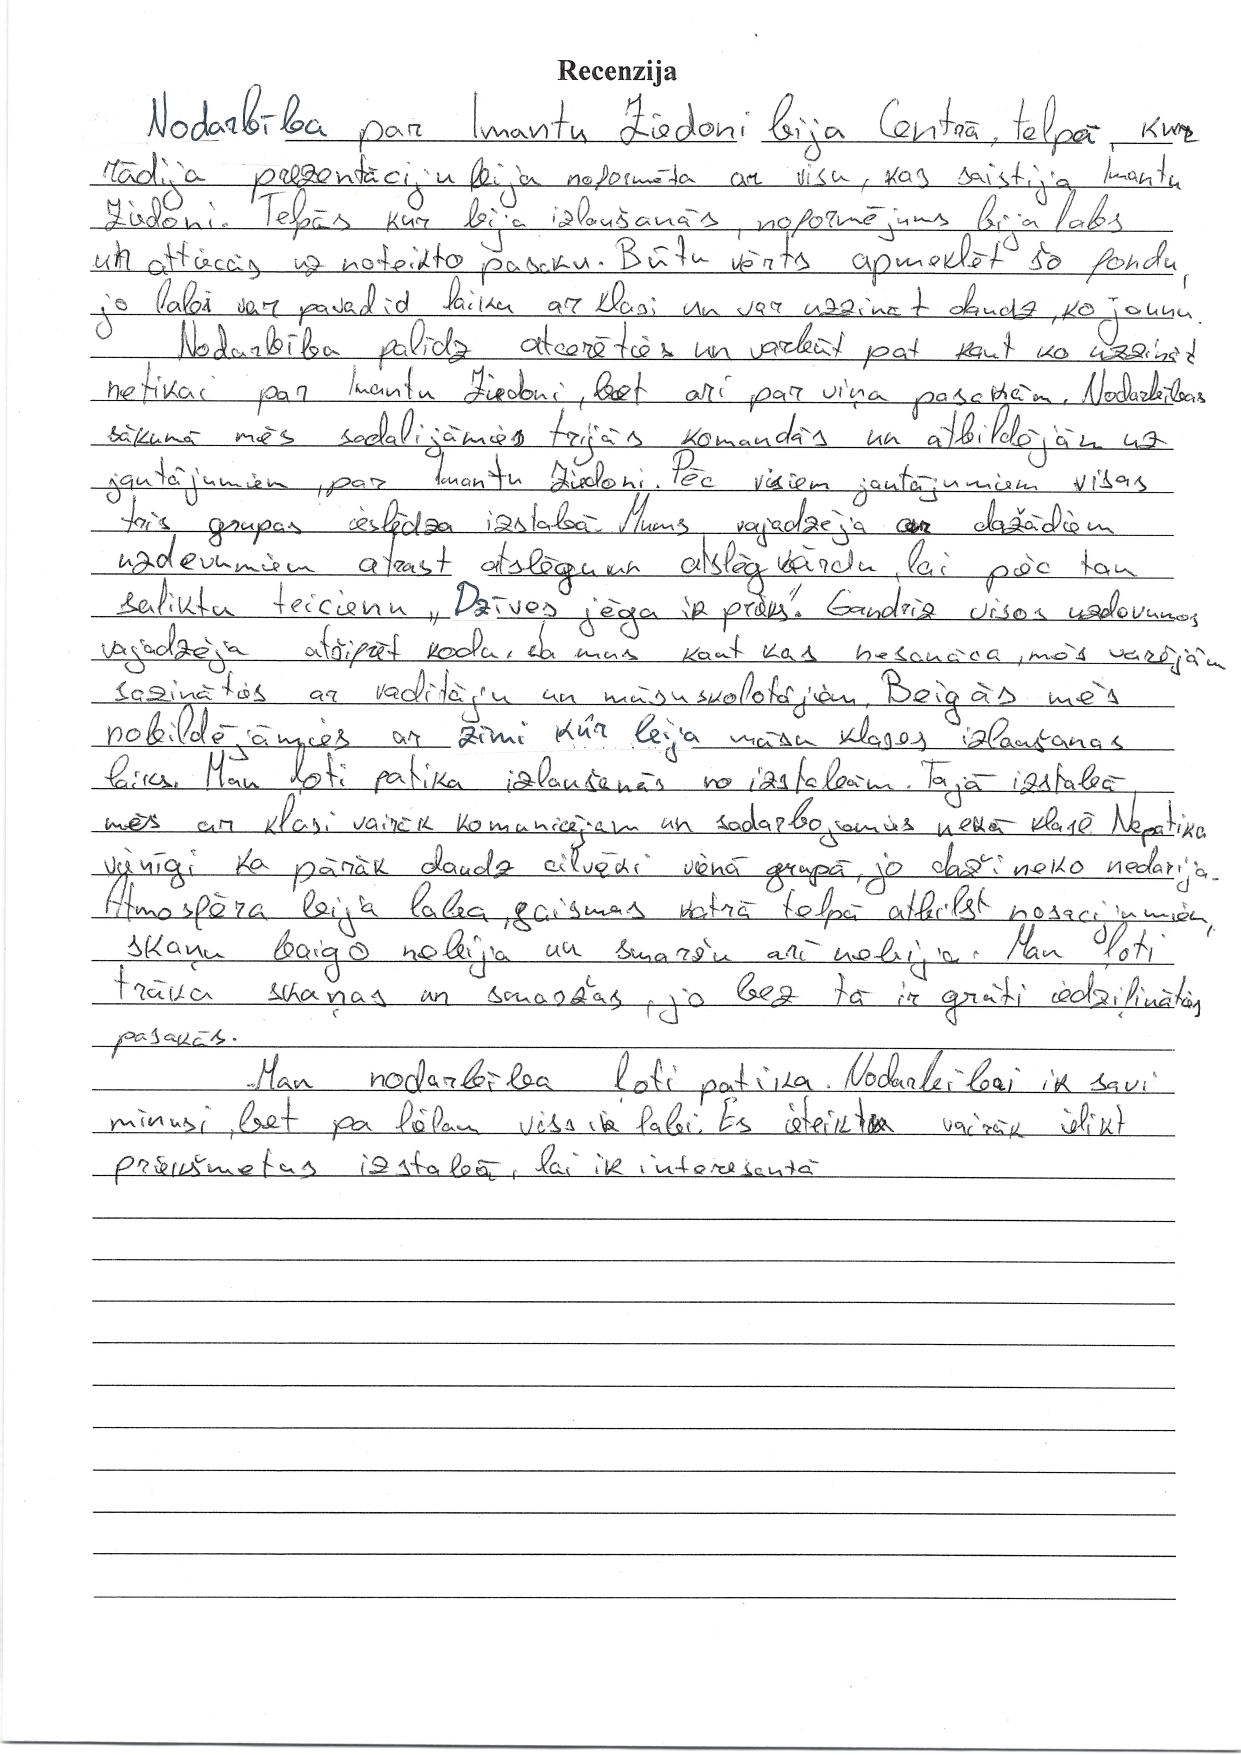 Recenzija
Nodarbība par Imantu Ziedoni bija Centrā, telpā, kur
rādija prezentāciju bija noformēta ar visu, kas saistija Imantu
Ziedoni. Telpās kur bija izlaušanās, noformējums bija labs
un attiecās uz noteikto pasaku. Būtu vērts apmeklēt šo fondu,
jo labi var pavadid laiku ar klasi un var uzzināt daudz, ko jaunu.
Nodarbība palīdz atcerēties un varbūt pat kaut ko uzzināt
netikai par Imantu Ziedoni, bet arī par viņa pasakām. Nodarbības
sākumā mēs sadalijāmies trijās komandās un atbildējām uz
jautājumiem, par Imantu Ziedoni. Pēc visiem jautājumiem visas
trīs grupas ieslēdza izstabā. Mums vajadzēja ar dažādiem
uzdevumiem atrast atslēgu un atslēg vārdu, lai pēc tam
saliktu teicienu „Dzīves jēga ir prieks". Gandrīz visos uzdevumos
vajadzēja atšifrēt kodu. Ja mus kaut kas nesanāca, mēs varējām
sazināties ar vadītāju un māsu skolotājām. Beigās mēs
nobildējāmies ar zīmi kur bija mūsu klases izlaušanas
laiks. Man ļoti patika izlaušanās no izstabām. Tajā izstabā
mēs ar klasi vairāk komunicējam un sadarbojamies nekā klasē. Nepatika
vienīgi ka pārāk daudz cilvēki vienā grupā, jo daži neko nedarija.
Atmosfēra bija laba, gaismas katrā telpā atbilst nosacijumiem,
skaņu baigo nebija un smaržu arī nebija. Man ļoti
trūka skaņas un smaržas, jo bez tā ir grūti iedziļināties
pasakās.
Man nodarbība ļoti patika. Nodarbībai ir savi
mīnusi, bet pa lielam viss ir labi. Es ieteiktu vairāk ielikt
priekšmetus izstabā, lai ir interesantā